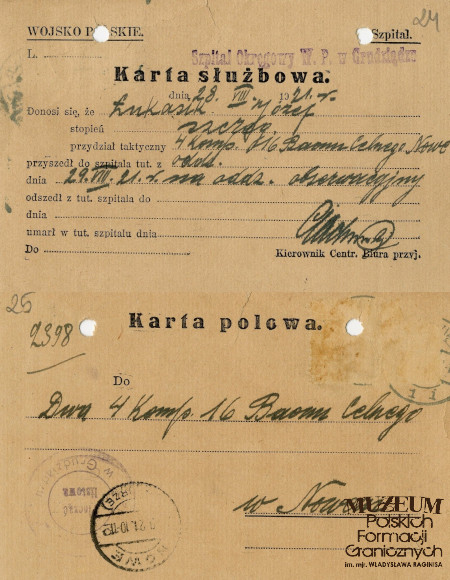 24
WOJSKO POLSKIE.
Szpital.
L.
Szpital Okręgowy W. P. w Grudziądzu
Karta służbowa.
dnia 28. VIII. 1921. r.
Donosi się, że Łukasik Józef
stopień szereg.
przydział taktyczny 4 Komp. 16 Baonu Celnego Nowe
przyszedł do szpitala tut. z oddz.
dnia 29. VIII. 21. r. na oddz. obserwacyjny
odszedł z tut. szpitala do
dnia
umarł w tut. szpitalu dnia
Do
Kierownik Centr. Biura przyj.
25
2398
Karta polowa.
Do
Dwa 4 Komp. 16 Baonu Celnego
w
NOWE
MUZEUM
Polskich
Formacji
Granicznych
im. mjr. WŁADYSŁAWA RAGINISA